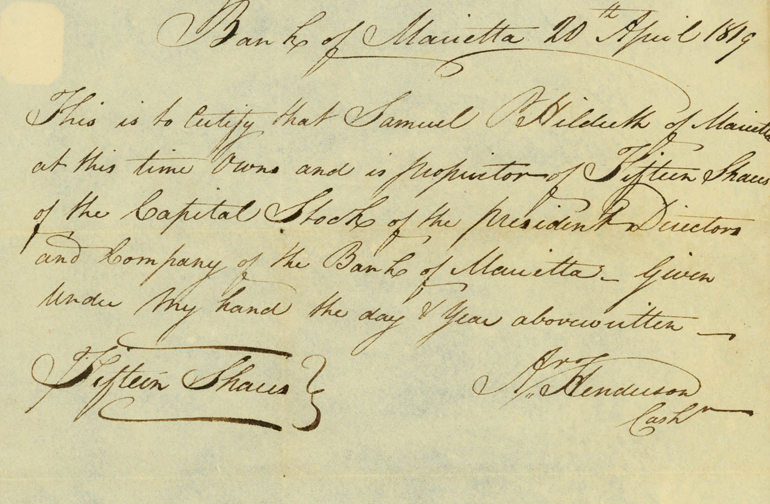 Bank of Marietta 20th April 1819
This is to Certify that Samuel P Hildreth of Marietta
at this time Owns and is proprietor of Fifteen Shares
of the Capital Stock of the president Directors
and Company of the Bank of Marietta – Given
Under My hand the day & Year abovewritten –
Fifteen Shares }
Henderson
Cashr